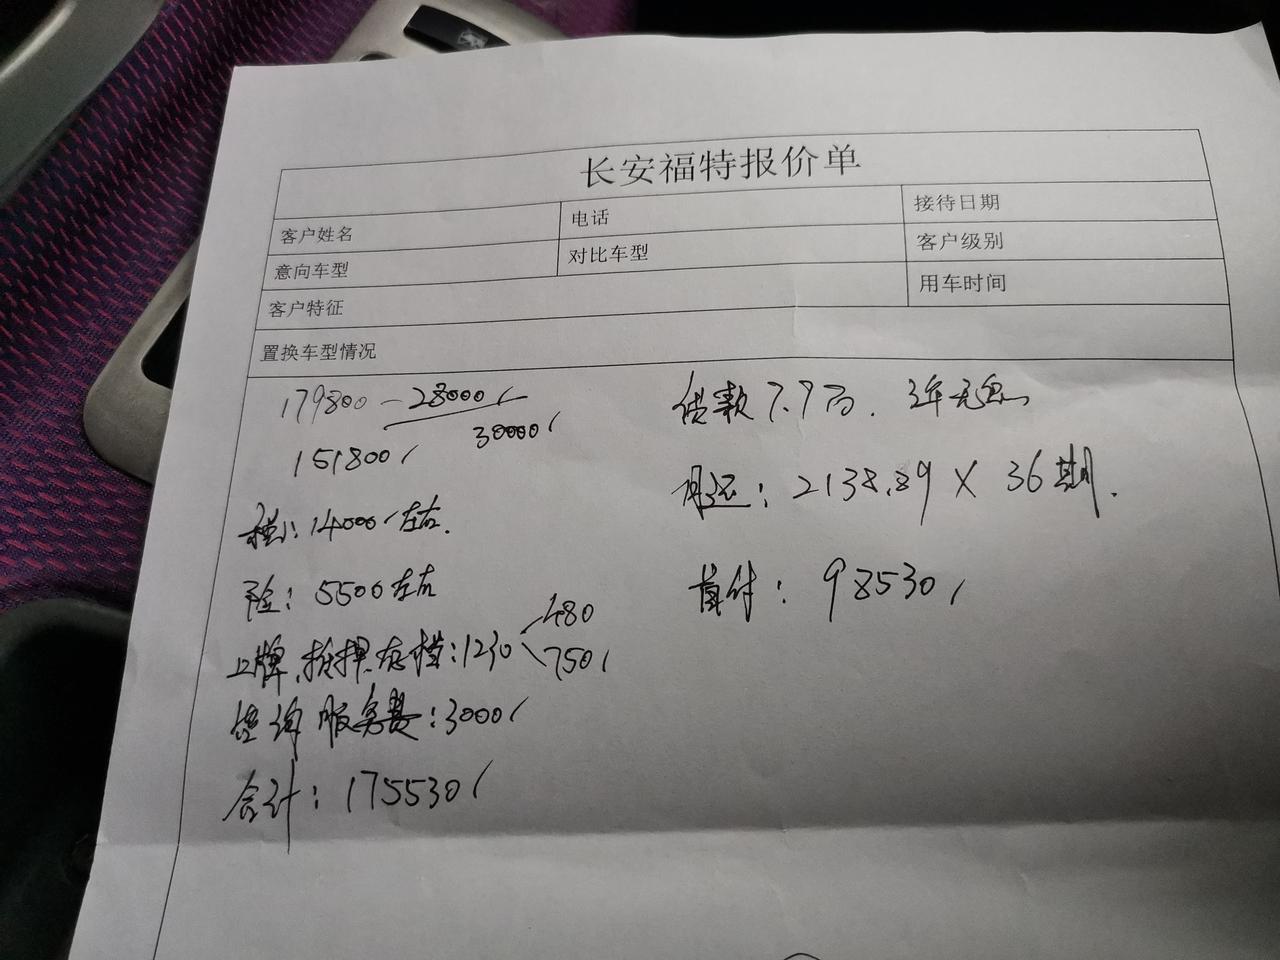 长安福特报价单
客户姓名 电话 接待日期
意向车型 对比车型 客户级别
客户特征 用车时间
置换车型情况
179800-28000
30000
151800
税:14000左右.
险:5500左右
上牌、抵押存档:1230
480
750
咨询服务费:3000
合计:175530
贷款7.7万. 3年无息
月还:2138.89×36期.
首付:98530